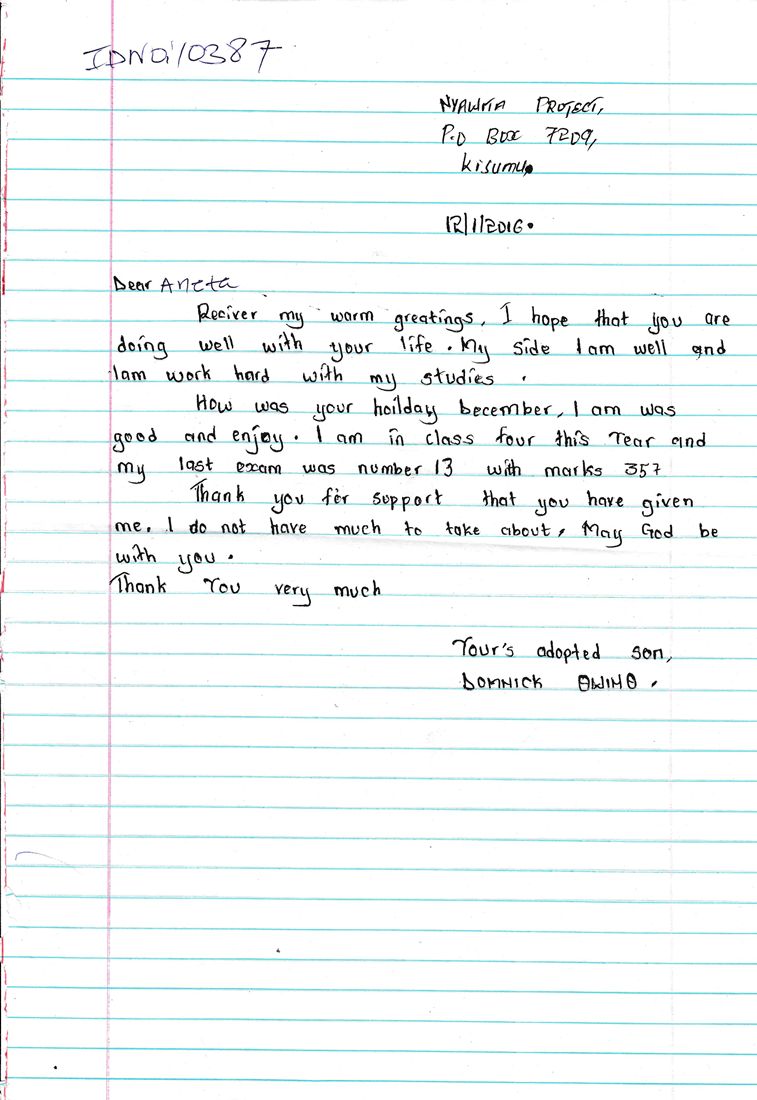 IDNO:/0387
NYAWITA PROJECT,
P.O BOX 7209,
kisumu,
12/1/2016.
Dear Aneta
Reciver my warm greatings, I hope that you are
doing well with your life. My side I am well and
Iam work hard with my studies.
How was your hoilday becember, I am was
good and enjoy. I am in class four this Year and
my last exam was number 13 with marks 357
Thank you fer support that you have given
me. I do not have much to take about, May God be
with you.
Thank You very much
Your's adopted son,
DOMNICK OWINO.